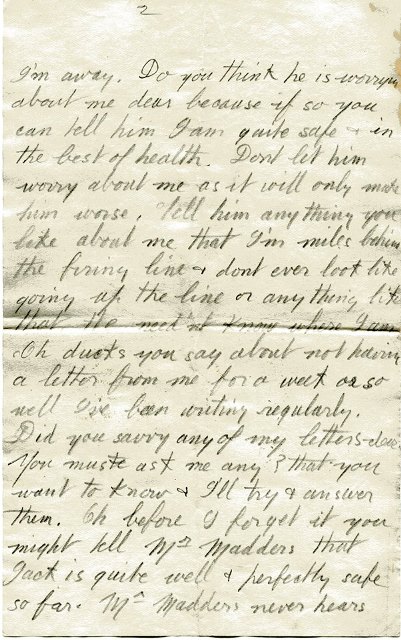 2
I'm away. Do you think he is worrying
about me dear because if so you
can tell him I am quite safe & in
the best of health. Dont let him
worry about me as it will only make
him worse. Tell him anything you
like about me that I'm miles behind
the firing line & dont ever look like
going up the line or anything like
that He need'nt know where I am
Oh ducks you say about not having
a letter from me for a week or so
well I've been writing regularly.
Did you savvy any of my letters dear
You must ask me any? that you
want to know & I'll try & answer
them. Oh before I forget it you
might tell Mrs Madders that
Jack is quite well & perfectly safe
so far. Mrs Madders never hears